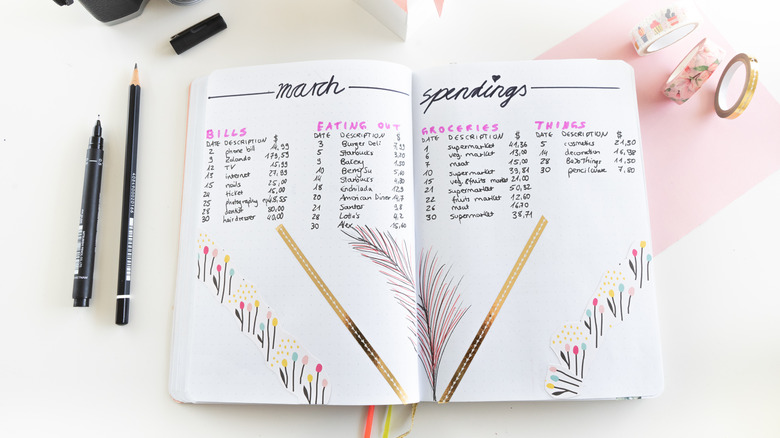 march
BILLS
DATE DESCRIPTION $
2 phone bill 14,99
9 Zalando
12 TV 15,99
internet 27,99
15 nails 25,00
24 ticket 16,00
25 photography
28 dentist 30,00
30 hairdresser 40,00
EATING OUT
DATE DESCRIPTION $
3 Burger Deli
5 Starbucks
9
10
14 Starbucks
18 Enchilada
20 American Diner
21 Santos
28
30 Alex
spendings
GROCERIES
DATE DESCRIPTION $
1 supermarket 41,36
6 veg. market 13,00
7 meat 15,00
10 supermarket 39,81
15 veg. & fruits market 21,00
21 supermarket 50,52
22 fruits market 12,60
26 meat 16,70
30 supermarket 38,71
THINGS
DATE DESCRIPTION $
5 cosmetics 21,50
14 decoration
28 BuJoThings 11,50
30 pencil case 7,80